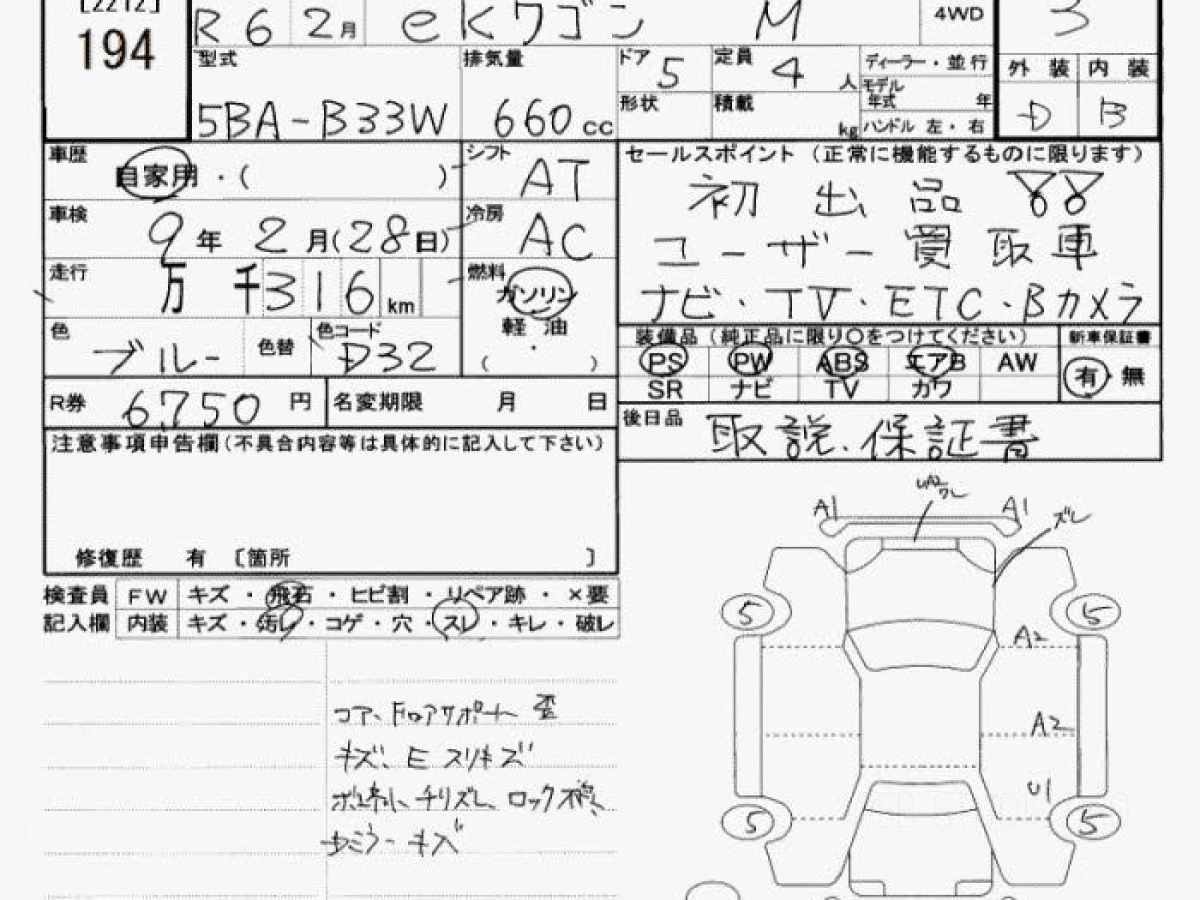 [2212]
194
R6 2月 eKワゴン M 4WD 3
型式 5BA-B33W
排気量 660cc
ドア 5
定員 4人
形状
積載 kg
ディーラー・並行
モデル年式 年
ハンドル 左・右
外装 内装
D B
車歴 自家用・( )
シフト AT
車検 9年2月(28日)
冷房 AC
走行 万 千316km
燃料 ガソリン
軽油
( )
色 ブルー 色替 色コード D32
R券 6,750円 名変期限 月 日
セールスポイント(正常に機能するものに限ります)
初出品
ユーザー買取車
ナビ・TV・ETC・Bカメラ
装備品(純正品に限り〇をつけてください) 新車保証書
PS PW ABS エアB AW 有・無
SR ナビ TV カワ
後日品 取説・保証書
注意事項申告欄(不具合内容等は具体的に記入して下さい)
修復歴 有 〔箇所 〕
検査員 FW キズ・飛石・ヒビ割・リペア跡・×要
記入欄 内装 キズ・汚レ・コゲ・穴・スレ・キレ・破レ
コア、Fロアサポート 歪
キズ、E スリキズ
チリズレ、ロック
ミラーキズ
A1 ワレ A1 ズレ
5 5
A2
A2
U1
5 5